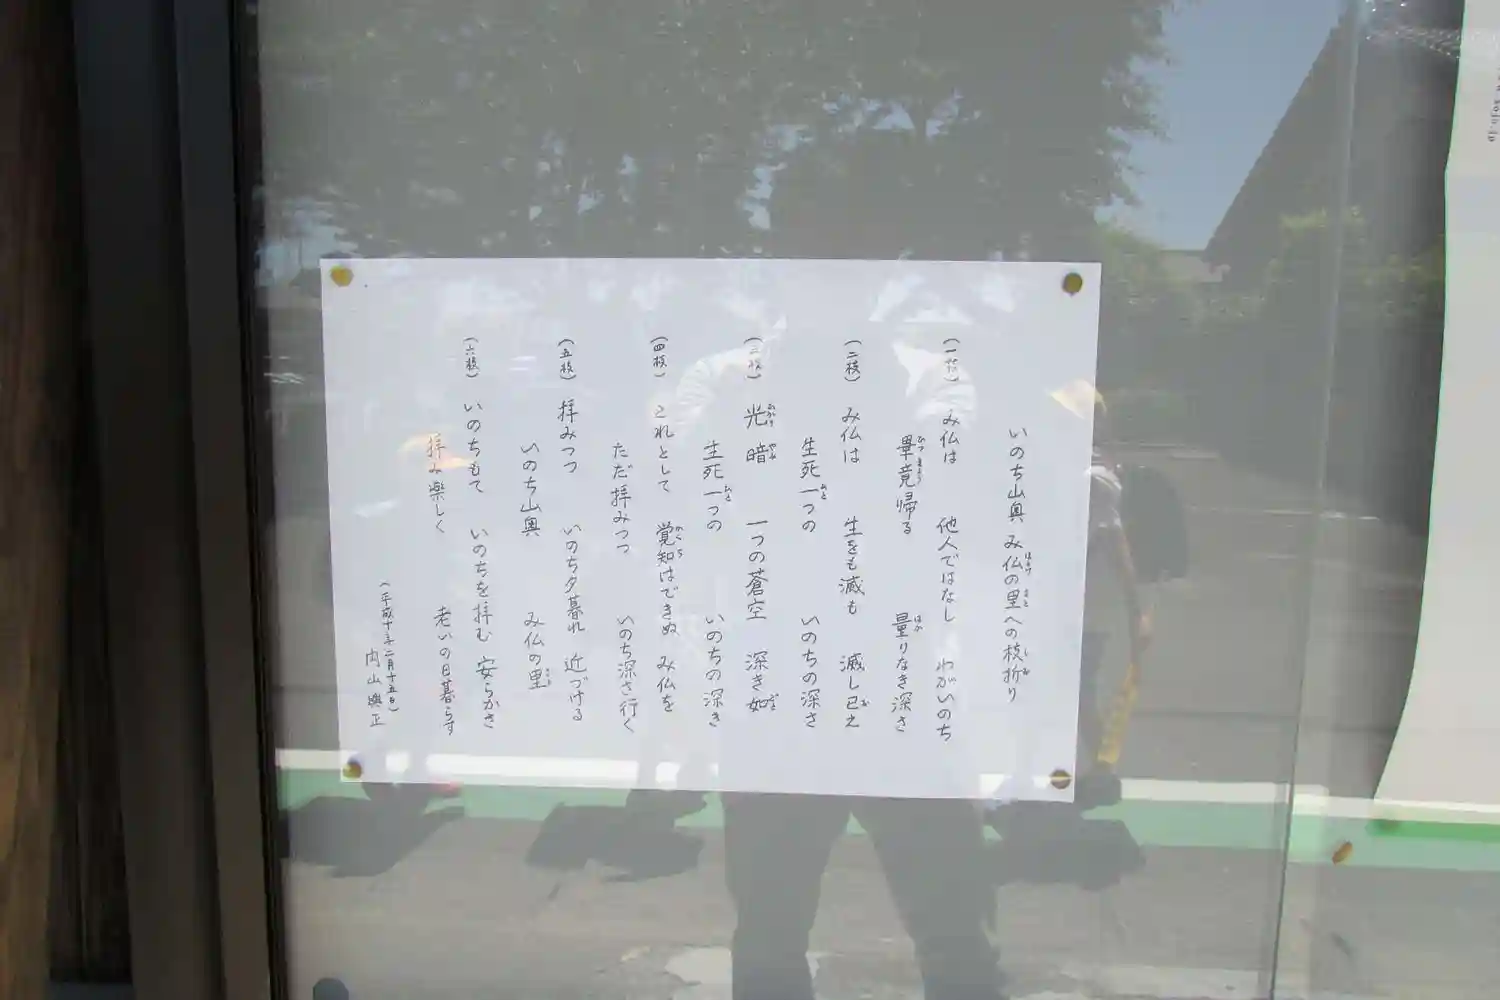 いのち山奥 み仏の里への枝折り
(一枝) み仏は 他人ではなし わがいのち
畢竟帰る 量りなき深さ
(二枝) み仏は 生をも滅も 滅し已え
生死一つの いのちの深さ
(三枝) 光 暗 一つの蒼空 深き如
生死一つの いのちの深き
(四枝) これとして 覚知はできぬ み仏を
ただ拝みつつ いのち深さ行く
(五枝) 拝みつつ いのち夕暮れ 近づける
いのち山奥 み仏の里
(六枝) いのちもて いのちを拝む 安らかさ
拝み楽しく 老いの日暮らす
(平成十年二月十五日)
内山興正